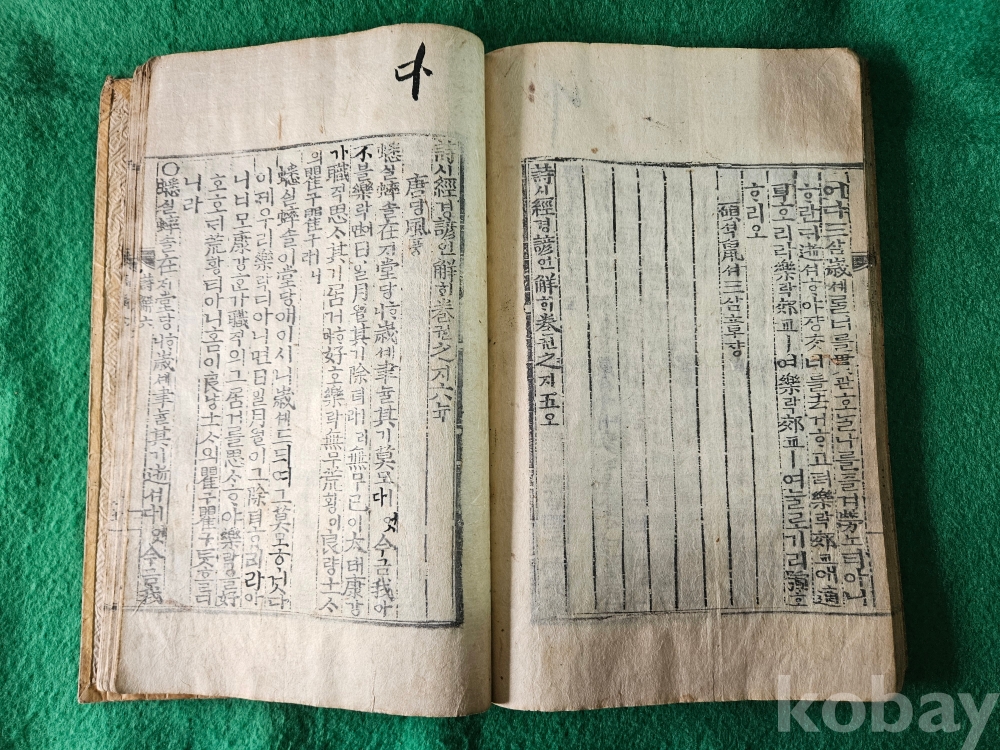 어다三삼歲셰룰너를貫관호눌나를즐겨勞노티아니
ᄒᆞ란ᄃᆡ逝셔ᄒᆞ야쟝ᄎᆞᆺ너를去거ᄒᆞ고뎌樂락郊교애適
뎍호리라樂락郊교ㅣ여樂락郊교ㅣ여눌로기리號호
ᄒᆞ리오
碩셕鼠셔三삼章쟝
詩시經경諺언解ᄒᆡ卷권之지五오
다
詩시經경諺언解ᄒᆡ卷권之지六뉵
唐당風풍
蟋실蟀솔在ᄌᆡ堂당ᄒᆞ니歲셰聿율其기莫모대엿今금我아
不블樂락면日일月월其기除뎌래리無무已이大태康강
가職직思ᄉᆞ其기居거ᄒᆞ好호樂락無무荒황이良량士ᄉᆞ
의瞿구瞿구래니
蟋실蟀솔이堂당애이시니歲셰드듸여그莫모ᄒᆞ엿다
이제우리樂락디아니면日일月월이그除뎌ᄒᆞ리라아
니너모康강ᄒᆞᆫ가職직의그居거를思ᄉᆞᄒᆞ야樂락을好
호호ᄃᆡ荒황티아니홈이良량士ᄉᆞ의瞿구瞿구ᄐᆞᆺᄒᆞᆯ디
니라
○蟋실蟀솔在ᄌᆡ堂당ᄒᆞ니歲셰聿율其기逝셔대엿今금我
詩解六
kobay